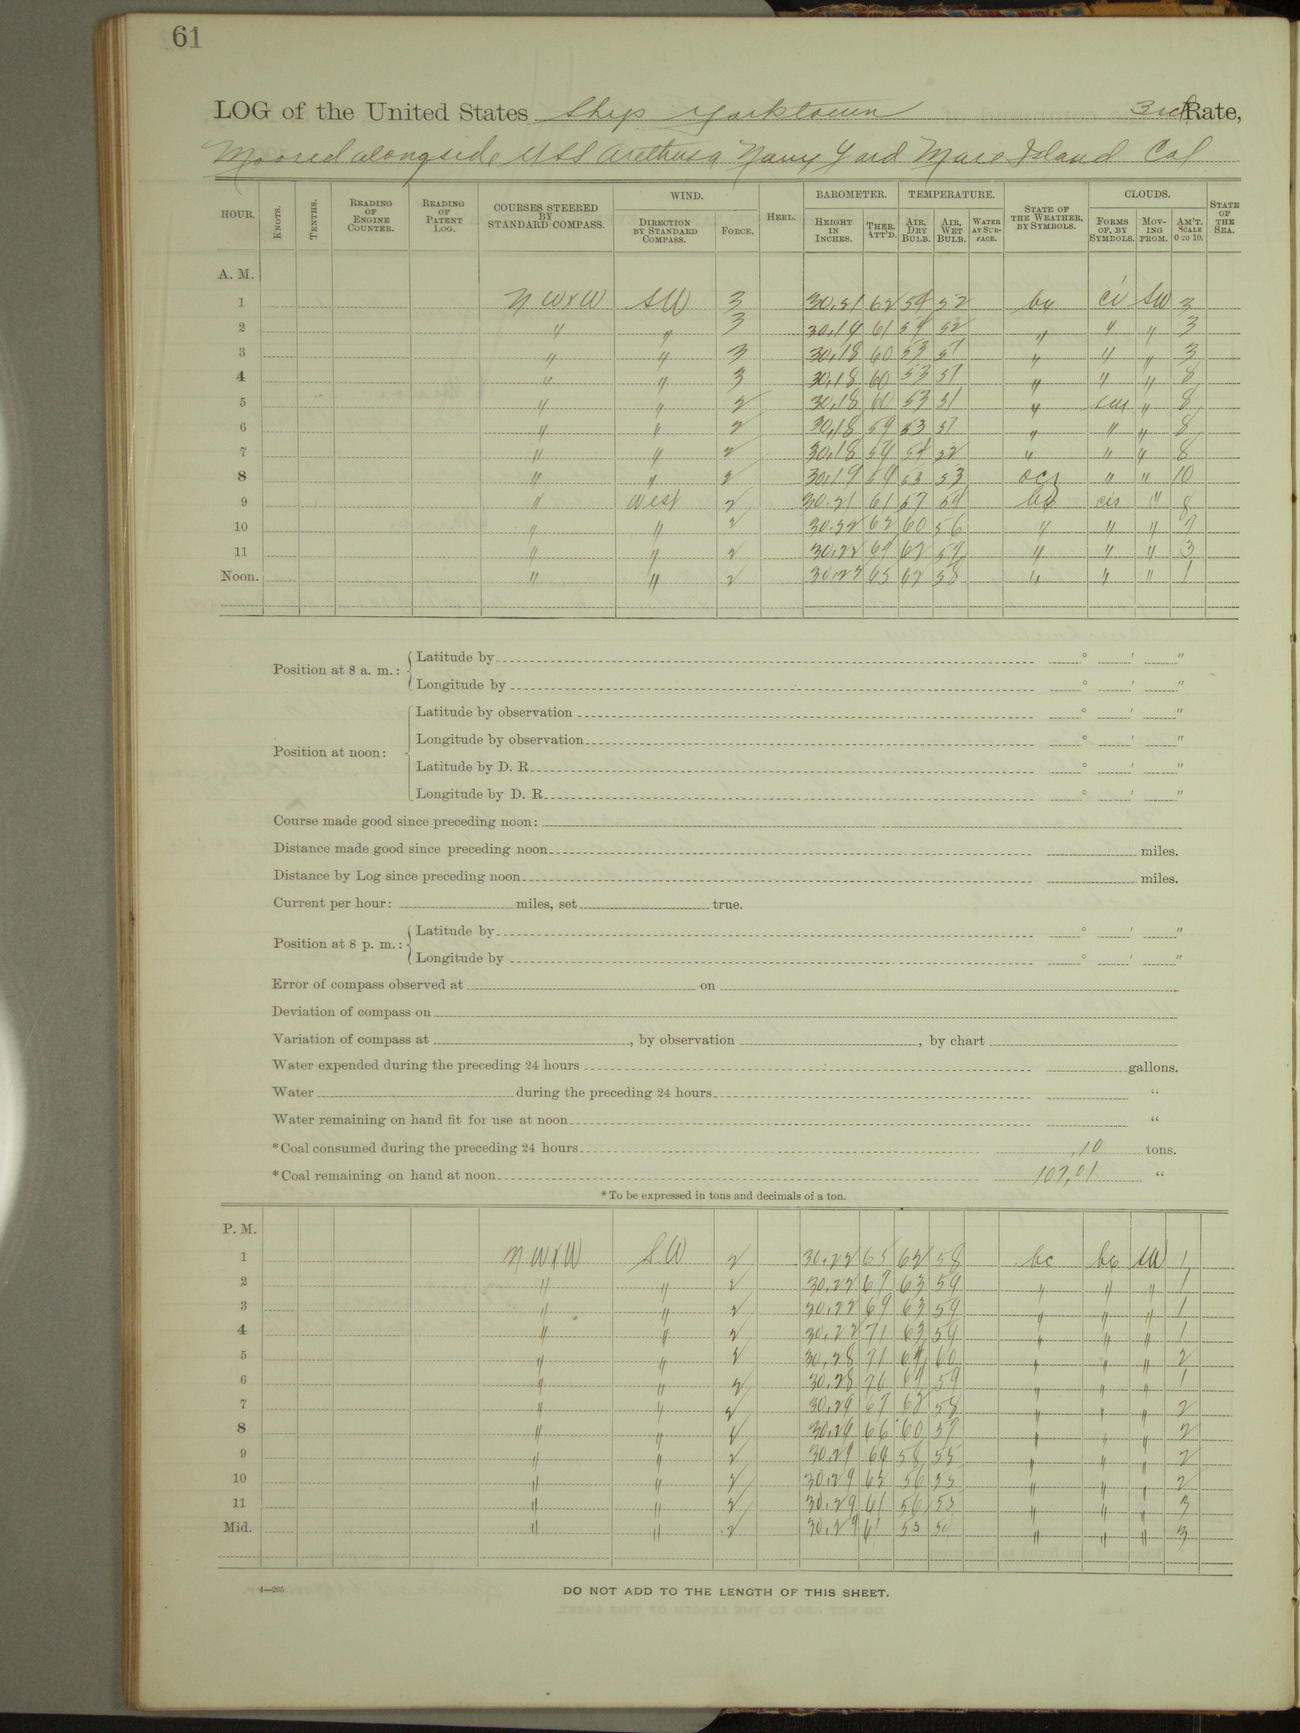 61
LOG of the United States Ship Yorktown 3rd Rate,
Moored alongside USS Arethusa Navy Yard Mare Island Cal
HOUR. KNOTS. TENTHS. READING OF ENGINE COUNTER. READING OF PATENT LOG. COURSES STEERED BY STANDARD COMPASS. WIND. DIRECTION BY STANDARD COMPASS. FORCE. HEEL. BAROMETER. HEIGHT IN INCHES. THER. ATT'D. TEMPERATURE. AIR, DRY BULB. AIR, WET BULB. WATER AT SURFACE. STATE OF THE WEATHER, BY SYMBOLS. CLOUDS. FORMS OF, BY SYMBOLS. MOVING FROM. AM'T. SCALE 0 TO 10. STATE OF THE SEA.
A. M.
1 NWxW SW 3 62 54 52 ci SW 3
2 " " 3 30.19 61 54 52 " " " 3
3 " " 3 30.18 60 53 51 " " " 3
4 " " 3 30.18 60 53 51 " " " 8
5 " " 2 30.18 60 53 51 " " 8
6 " " 2 30.18 59 53 51 " " " 8
7 " " 2 30.18 59 54 52 " " " 8
8 " " 2 30.19 59 53 53 " " 10
9 " West 2 30.21 61 57 54 " 8
10 " " 2 30.22 62 60 56 " " "
11 " " 2 30.22 62 " " " 3
Noon. " " 2 65 62 58 " " " 1
Position at 8 a. m.: Latitude by ° ' "
Longitude by ° ' "
Position at noon: Latitude by observation ° ' "
Longitude by observation ° ' "
Latitude by D. R. ° ' "
Longitude by D. R. ° ' "
Course made good since preceding noon:
Distance made good since preceding noon miles.
Distance by Log since preceding noon miles.
Current per hour: miles, set true.
Position at 8 p. m.: Latitude by ° ' "
Longitude by ° ' "
Error of compass observed at on
Deviation of compass on
Variation of compass at , by observation , by chart
Water expended during the preceding 24 hours gallons.
Water during the preceding 24 hours "
Water remaining on hand fit for use at noon "
*Coal consumed during the preceding 24 hours .10 tons.
*Coal remaining on hand at noon 107.01 "
* To be expressed in tons and decimals of a ton.
P. M.
1 NWxW SW 2 30.22 65 62 58 bc SW 1
2 " " 2 30.22 67 63 59 " " " 1
3 " " 2 30.22 69 63 59 " " " 1
4 " " 2 30.22 71 63 59 " " " 1
5 " " 2 30.28 71 64 60 " " " 2
6 " " 2 30.28 64 59 " " " 1
7 " " 2 30.29 67 62 58 " " " 2
8 " " 2 30.29 66 60 57 " " " 2
9 " " 2 30.29 64 58 55 " " " 2
10 " " 2 30.29 62 56 " " " 2
11 " " 2 30.29 61 56 53 " " " 3
Mid. " " 2 30.29 61 53 50 " " " 3
4—265
DO NOT ADD TO THE LENGTH OF THIS SHEET.